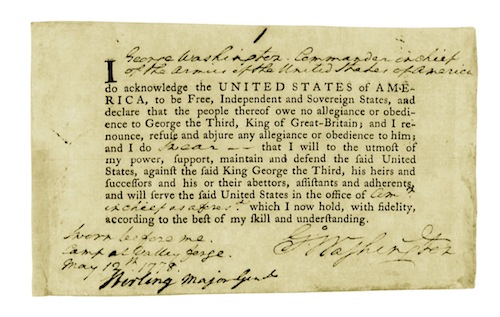 I George Washington, Commander in chief
of the Armies of the United States of America
do acknowledge the UNITED STATES of AME-
RICA, to be Free, Independent and Sovereign States, and
declare that the people thereof owe no allegiance or obedi-
ence to George the Third, King of Great-Britain; and I re-
nounce, refuſe and abjure any allegiance or obedience to him;
and I do swear — that I will to the utmoſt of
my power, ſupport, maintain and defend the ſaid United
States, againſt the ſaid King George the Third, his heirs and
ſucceſſors and his or their abettors, aſſiſtants and adherents,
and will ſerve the ſaid United States in the office of
in chief as which I now hold, with fidelity,
according to the beſt of my ſkill and underſtanding.
Sworn before me.
Camp at Valley forge.
May 12th 1778.
Stirling Major Genl
GWashington